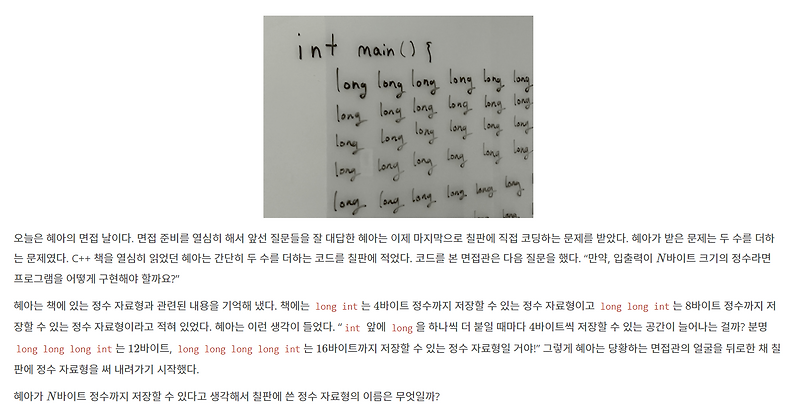 int main() {
long long long long long long
long long long long long long
long long long long long long
long long long long long long
long long long long long long
오늘은 혜아의 면접 날이다. 면접 준비를 열심히 해서 앞선 질문들을 잘 대답한 혜아는 이제 마지막으로 칠판에 직접 코딩하는 문제를 받았다. 혜아가 받은 문제는 두 수를 더하
는 문제였다. C++ 책을 열심히 읽었던 혜아는 간단히 두 수를 더하는 코드를 칠판에 적었다. 코드를 본 면접관은 다음 질문을 했다. “만약, 입출력이 N바이트 크기의 정수라면
프로그램을 어떻게 구현해야 할까요?”
혜아는 책에 있는 정수 자료형과 관련된 내용을 기억해 냈다. 책에는 long int 는 4바이트 정수까지 저장할 수 있는 정수 자료형이고 long long int 는 8바이트 정수까지 저
장할 수 있는 정수 자료형이라고 적혀 있었다. 혜아는 이런 생각이 들었다. “ int 앞에 long 을 하나씩 더 붙일 때마다 4바이트씩 저장할 수 있는 공간이 늘어나는 걸까? 분명
long long long int 는 12바이트, long long long long int 는 16바이트까지 저장할 수 있는 정수 자료형일 거야!” 그렇게 혜아는 당황하는 면접관의 얼굴을 뒤로한 채 칠
판에 정수 자료형을 써 내려가기 시작했다.
혜아가 N바이트 정수까지 저장할 수 있다고 생각해서 칠판에 쓴 정수 자료형의 이름은 무엇일까?